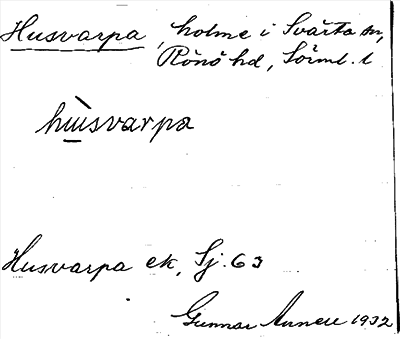 Husvarpa, holme i Svärta sn,
Rönö hd, Sörml. l.
hùsvarpa
Husvarpa ek, Sj. 63
Gunnar 1932